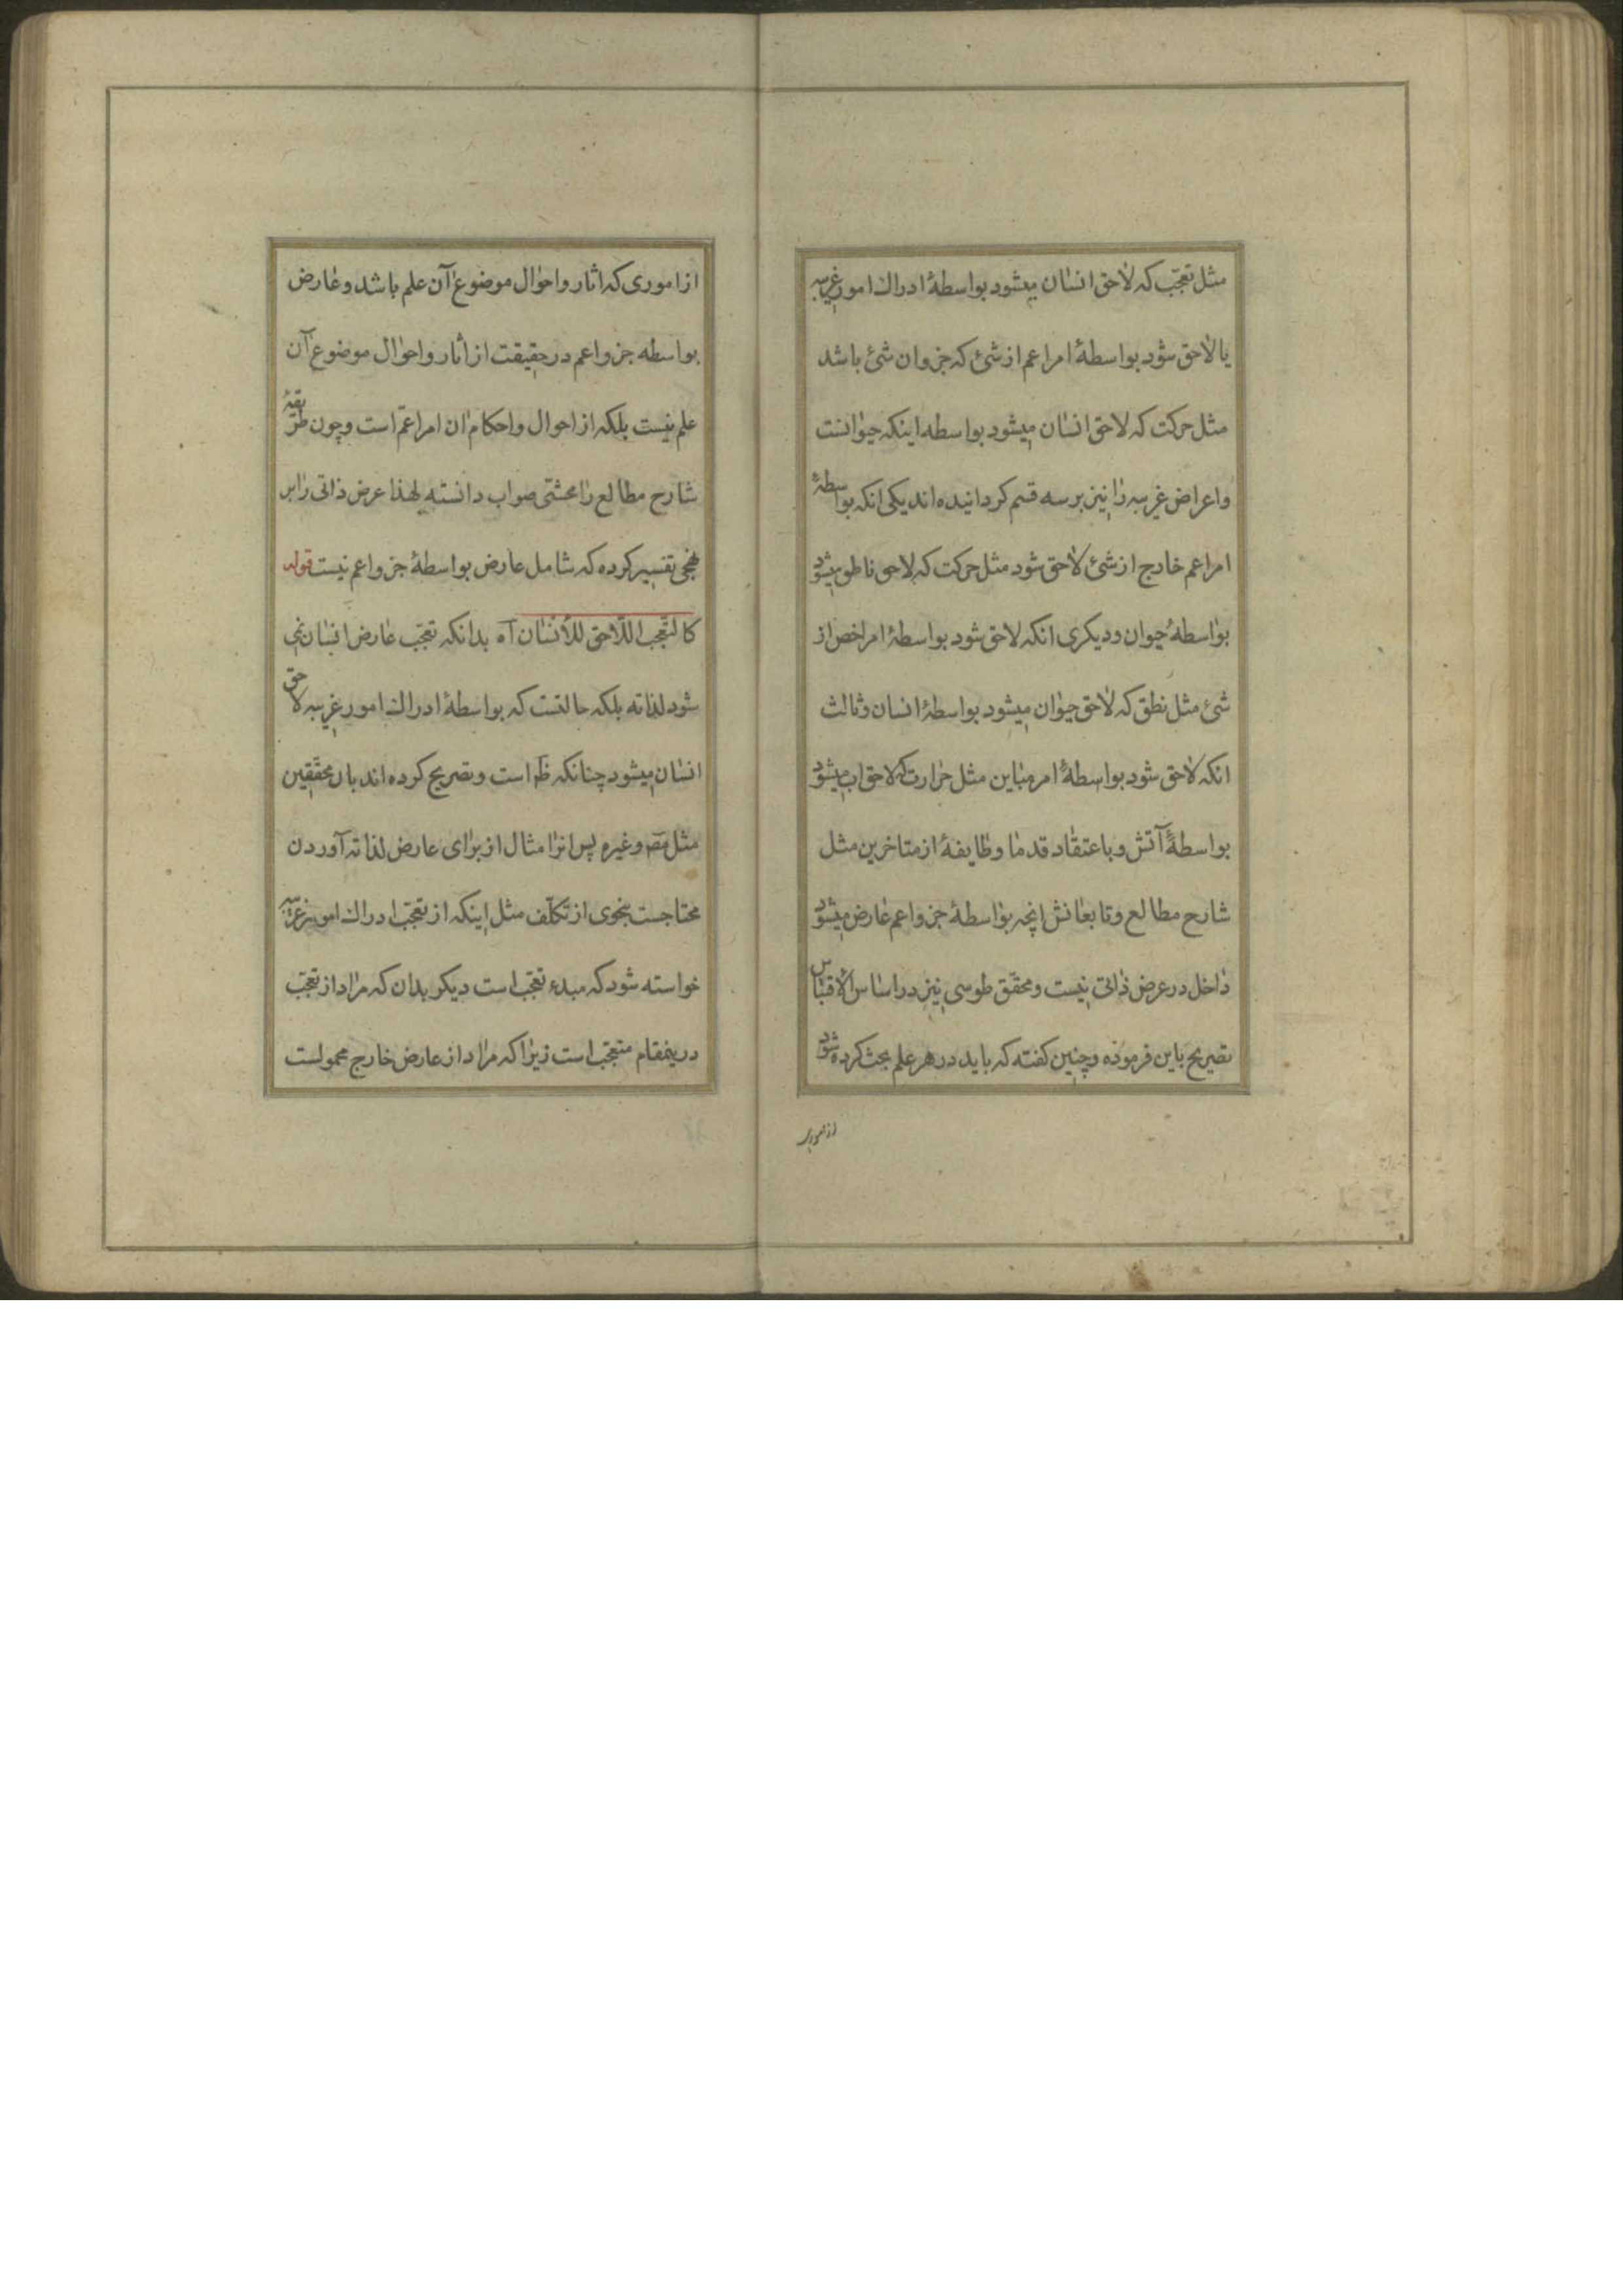 مثل تعجّب که لاحق انسان میشود بواسطهٔ ادراک امور غریبه
یا لاحق شود بواسطهٔ امر اعم از شئ که جزو ان شئ باشد
مثل حرکت که لاحق انسان میشود بواسطه اینکه حیوانست
واعراض غریبه را نیز بر سه قسم کردانیده اند یکی انکه بواسطهٔ
امر اعم خارج از شئ لاحق شود مثل حرکت که لاحق ناطق میشود
بواسطهٔ حیوان ودیکری انکه لاحق شود بواسطهٔ امر اخص از
شئ مثل نطق که لاحق حیوان میشود بواسطهٔ انسان وثالث
انکه لاحق شود بواسطهٔ امر مباین مثل حرارت که لاحق اب میشود
بواسطهٔ آتش وباعتقاد قدما وطایفهٔ از متاخرین مثل
شارح مطالع وتابعانش انچه بواسطهٔ جزو اعم عارض میشود
داخل در عرض ذاتی نیست ومحقق طوسی نیز در اساس الاقتباس
تصریح باین فرموده وچنین کفته که باید در هر علم بحث کرده شود
از اموری
از اموری که اثار واحوال موضوع آن علم باشد وعارض
بواسطه جزو اعم در حقیقت از اثار واحوال موضوع آن
علم نیست بلکه از احوال واحکام ان امر اعمّ است وچون طریقهٔ
شارح مطالع را محشّی صواب دانسته لهذا عرض ذاتی را بر
نهجی تفسیر کرده که شامل عارض بواسطهٔ جزو اعم نیست قوله
کالتّعجب اللّاحق للأنسان آه بدانکه تعجّب عارض انسان نمی
شود لذاته بلکه حالتست که بواسطهٔ ادراک امور غریبه لاحق
انسان میشود چنانکه ظ است وتصریح کرده اند بان محقّقین
مثل مص وغیره پس انرا مثال از برای عارض لذاته آوردن
محتاجست بنحوی از تکلّف مثل اینکه از تعجّب ادراک امور غریبه
خواسته شود که مبدء تعجّب است دیکر بدان که مراد از تعجّب
درینمقام متعجّب است زیرا که مراد از عارض خارج محمولست